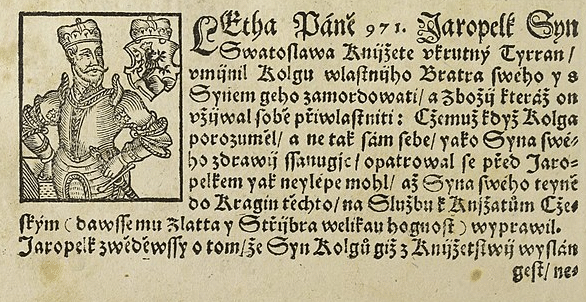 LEtha Páně 971. Jaropelk Syn
Swatoslawa Knijžete vkrutný Tyrran/
vmijnil Kolgu wlastnijho Bratra swého y s
Synem geho zamordowati/ a Zbožij kteráž on
vžijwal sobě přiwlastniti: Cžemuž když Kolga
porozuměl/ a ne tak sám sebe/ yako Syna swé-
ho zdrawij ssanugjc/ opatrowal se před Jaro-
pelkem yak neylépe mohl/ až Syna swého teyně
do Kragin těchto/ na Službu k Knjžatům Cže-
ským (dawsse mu Zlatta y Střijbra welikau hognost) wyprawil.
Jaropelk zwěděwssy o tom/ že Syn Kolgů giž z Knijžetstwij wyslán
gest/ ne-